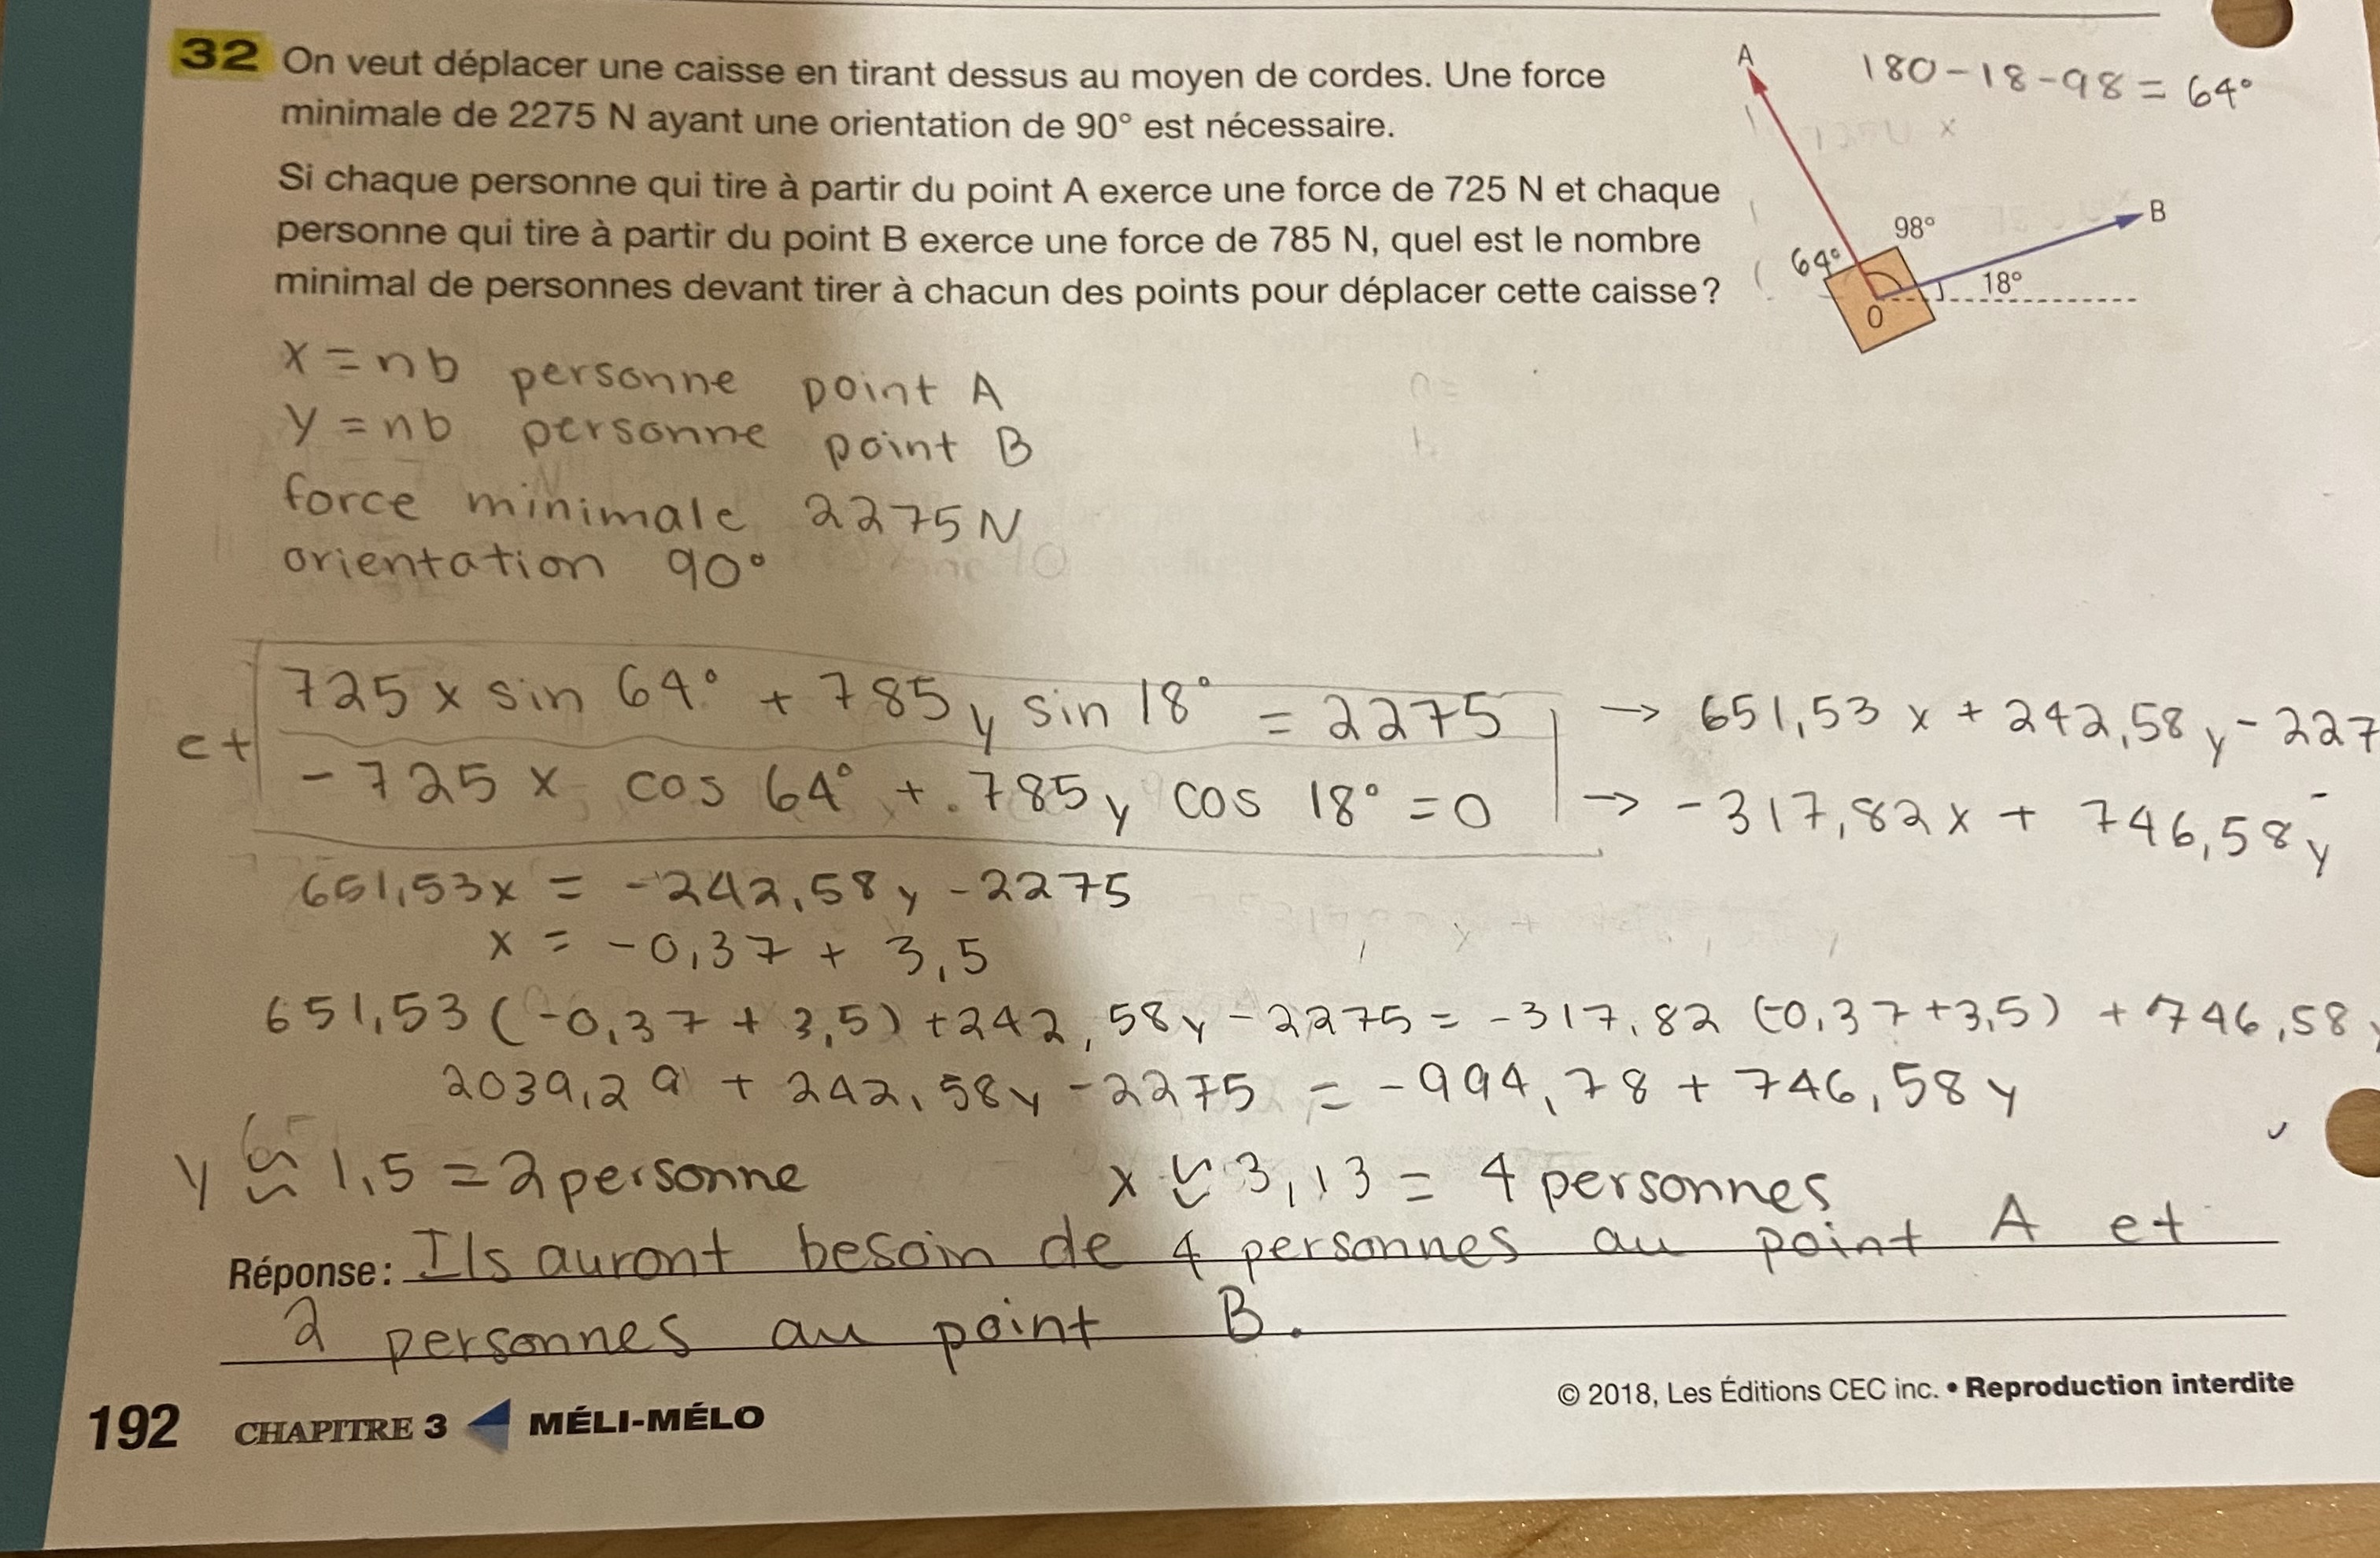 32 On veut déplacer une caisse en tirant dessus au moyen de cordes. Une force
minimale de 2275 N ayant une orientation de 90° est nécessaire.
Si chaque personne qui tire à partir du point A exerce une force de 725 N et chaque
personne qui tire à partir du point B exerce une force de 785 N, quel est le nombre
minimal de personnes devant tirer à chacun des points pour déplacer cette caisse ?
A
180-18-98 = 64°
B
98°
64°
18°
O
x = nb personne point A
y = nb personne point B
force minimale 2275 N
orientation 90°
725 x sin 64° + 785y sin 18° = 2275 → 651,53 x + 242,58y - 227
et
- 725 x cos 64° + 785y cos 18° = 0 → -317,82x + 746,58y
651,53x = -242,58y - 2275
x = -0,37 + 3,5
651,53 (-0,37 + 3,5) + 242,58y - 2275 = -317,82 (-0,37+3,5) + 746,58
2039,29 + 242,58y - 2275 = -994,78 + 746,58y
y ≈ 1,5 = 2 personne x ≈ 3,13 = 4 personnes
Réponse: Ils auront besoin de 4 personnes au point A et
2 personnes au point B.
© 2018, Les Éditions CEC inc. • Reproduction interdite
192 CHAPITRE 3 MÉLI-MÉLO